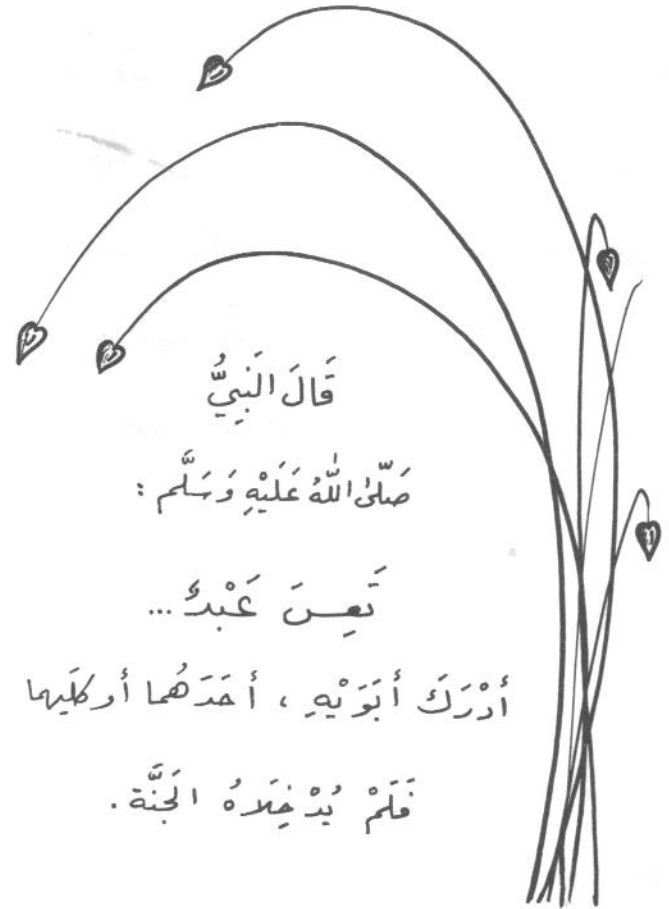 قَالَ النَبِيُّ
صَلَّىٰ اللّٰهُ عَلَيْهِ وَسَلَّم :
تَعِسَ عَبْدٌ ...
أدْرَكَ أبَوَيْهِ ، أحَدَهُما أو كلَيهما
فَلَمْ يُدْخِلَاهُ الجَنَّة .